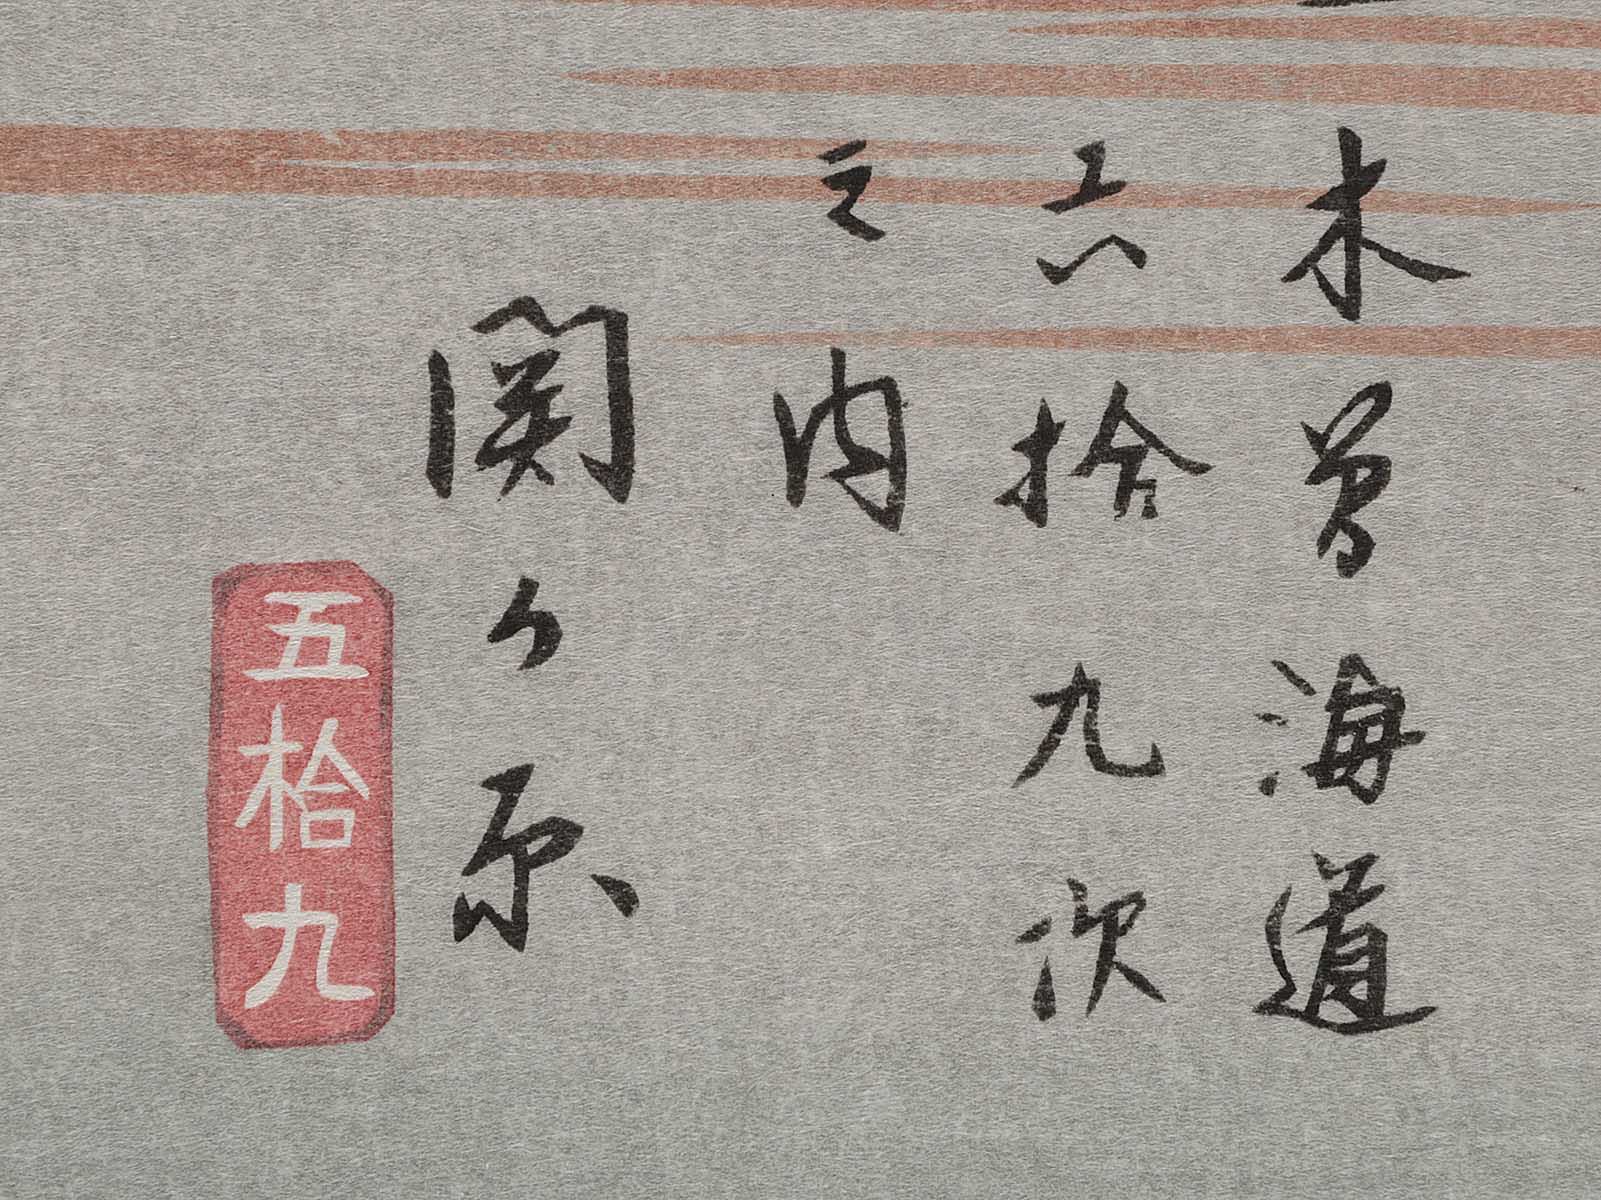 木曽海道
六拾九次
之内
関ケ原
五拾九